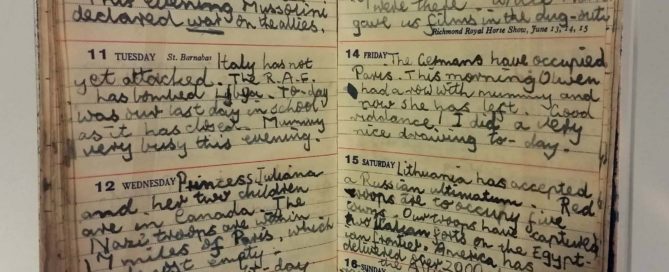 This evening Mussolini
declared war on the allies.
11 TUESDAY St. Barnabas Italy has not
yet attacked. The R.A.F.
has bombed Libya. To-day
was our last day in school
as it has closed. Mummy
very busy this evening.
12 WEDNESDAY Princess Juliana
and her two children
are in Canada. The
Nazi troops are within
17 miles of Paris, which
empty.
were there
gave us films in the dug-out.
Richmond Royal Horse Show, June 13, 14, 15
14 FRIDAY The Germans have occupied
Paris. This morning Olwen
had a row with mummy and
now she has left. Good
riddance! I did a very
nice drawing to-day.
15 SATURDAY Lithuania has accepted
a Russian ultimatum. Red
troops are to occupy five
towns. Our troops have captured
two Italian forts on the Egypt-
ian frontier. America has
delivered over 2000
16 SUNDAY the